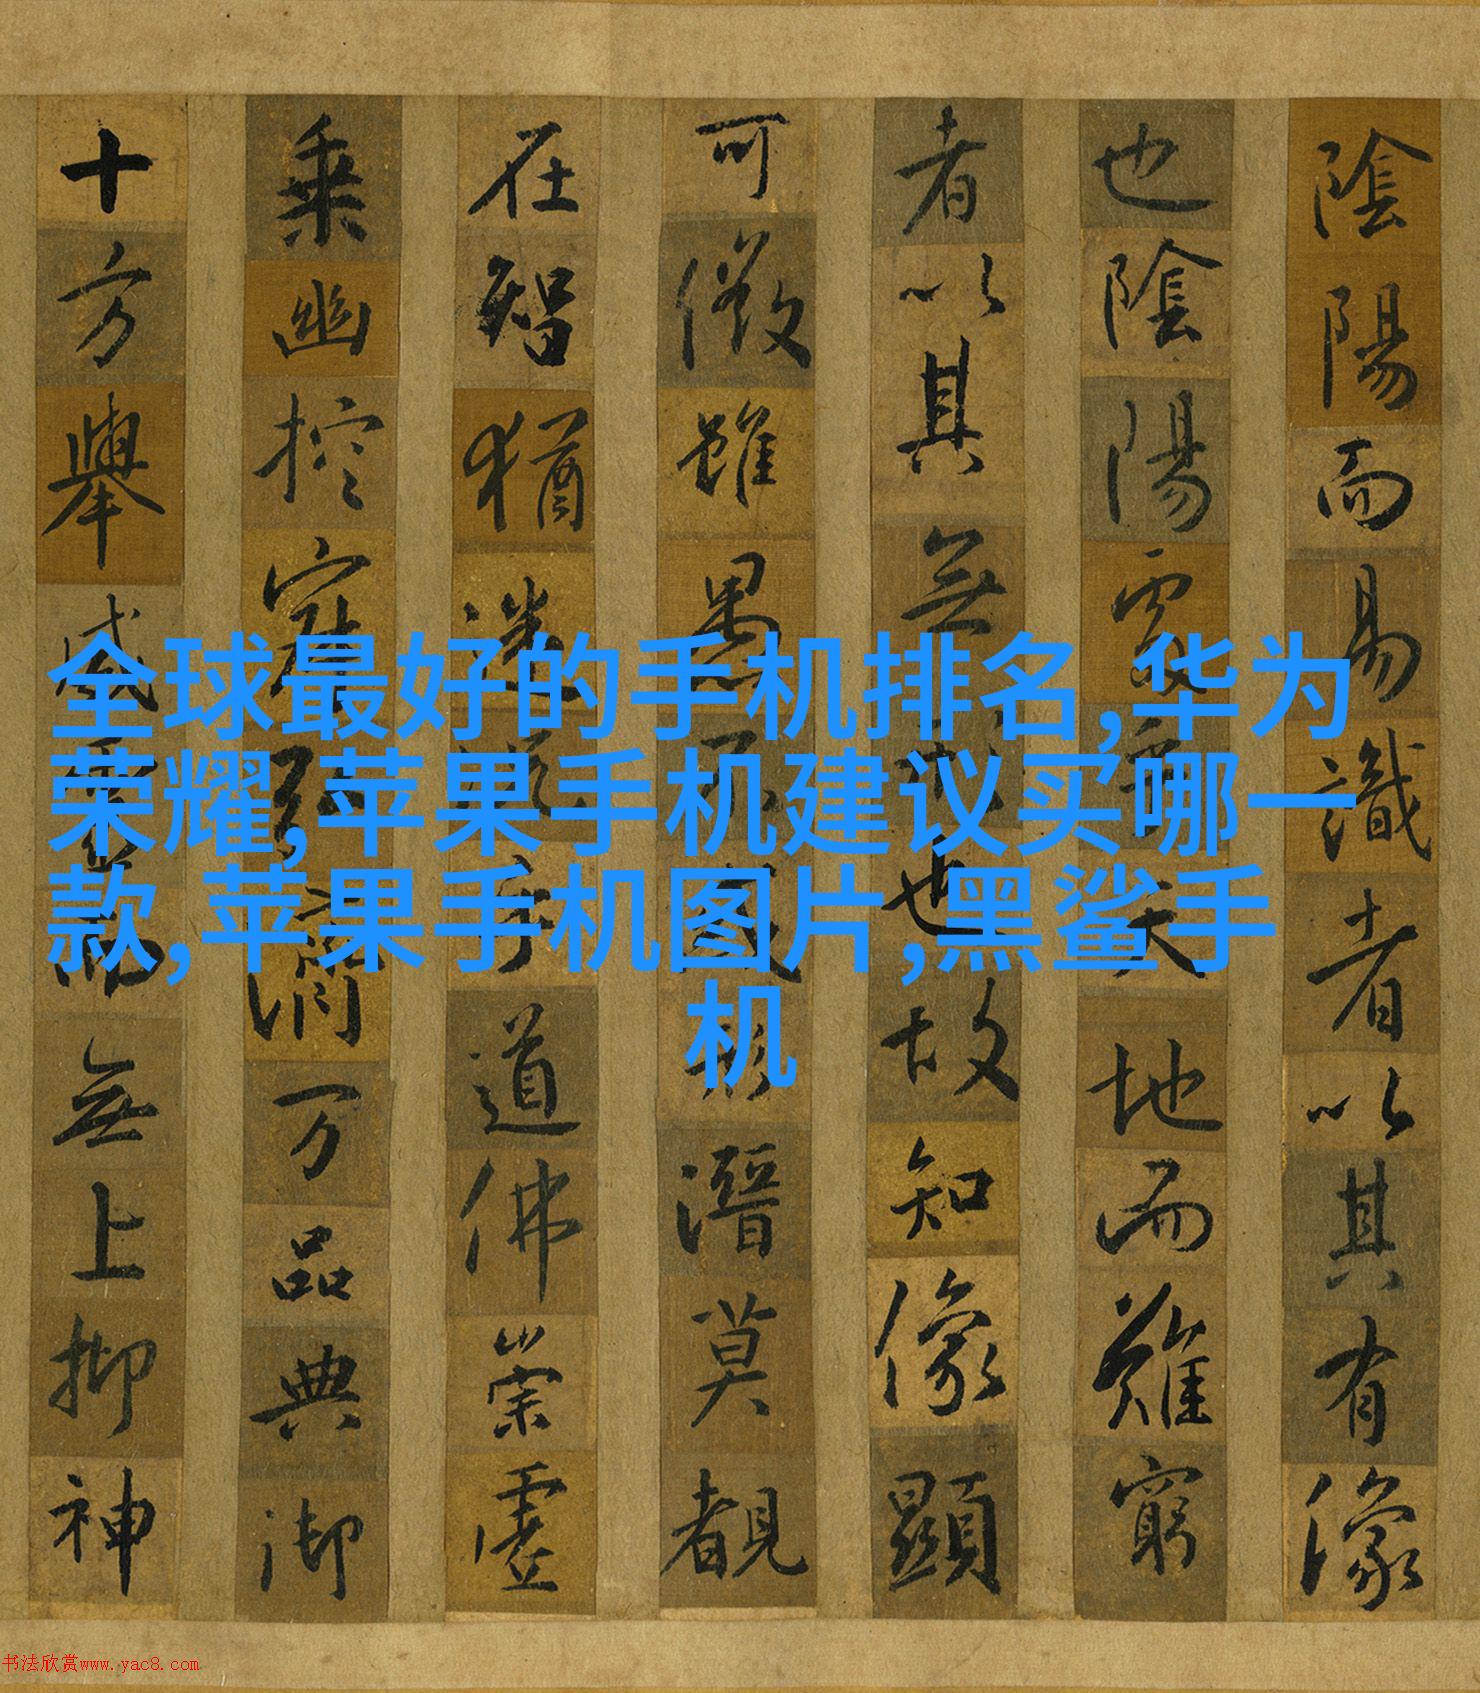 陰陽而易識者以其有像
也陰陽處乎天地而難窮
者以其無形也故知像顯
可徵雖愚不惑形潛莫覩
在智猶迷況乎道佛崇虛
乘幽控寂弘濟万品典御
十方舉威靈而無上抑神
全球最好的手机排名,华为
荣耀,苹果手机建议买哪一
款,苹果手机图片,黑鲨手
机
书法欣赏www.yac8.com